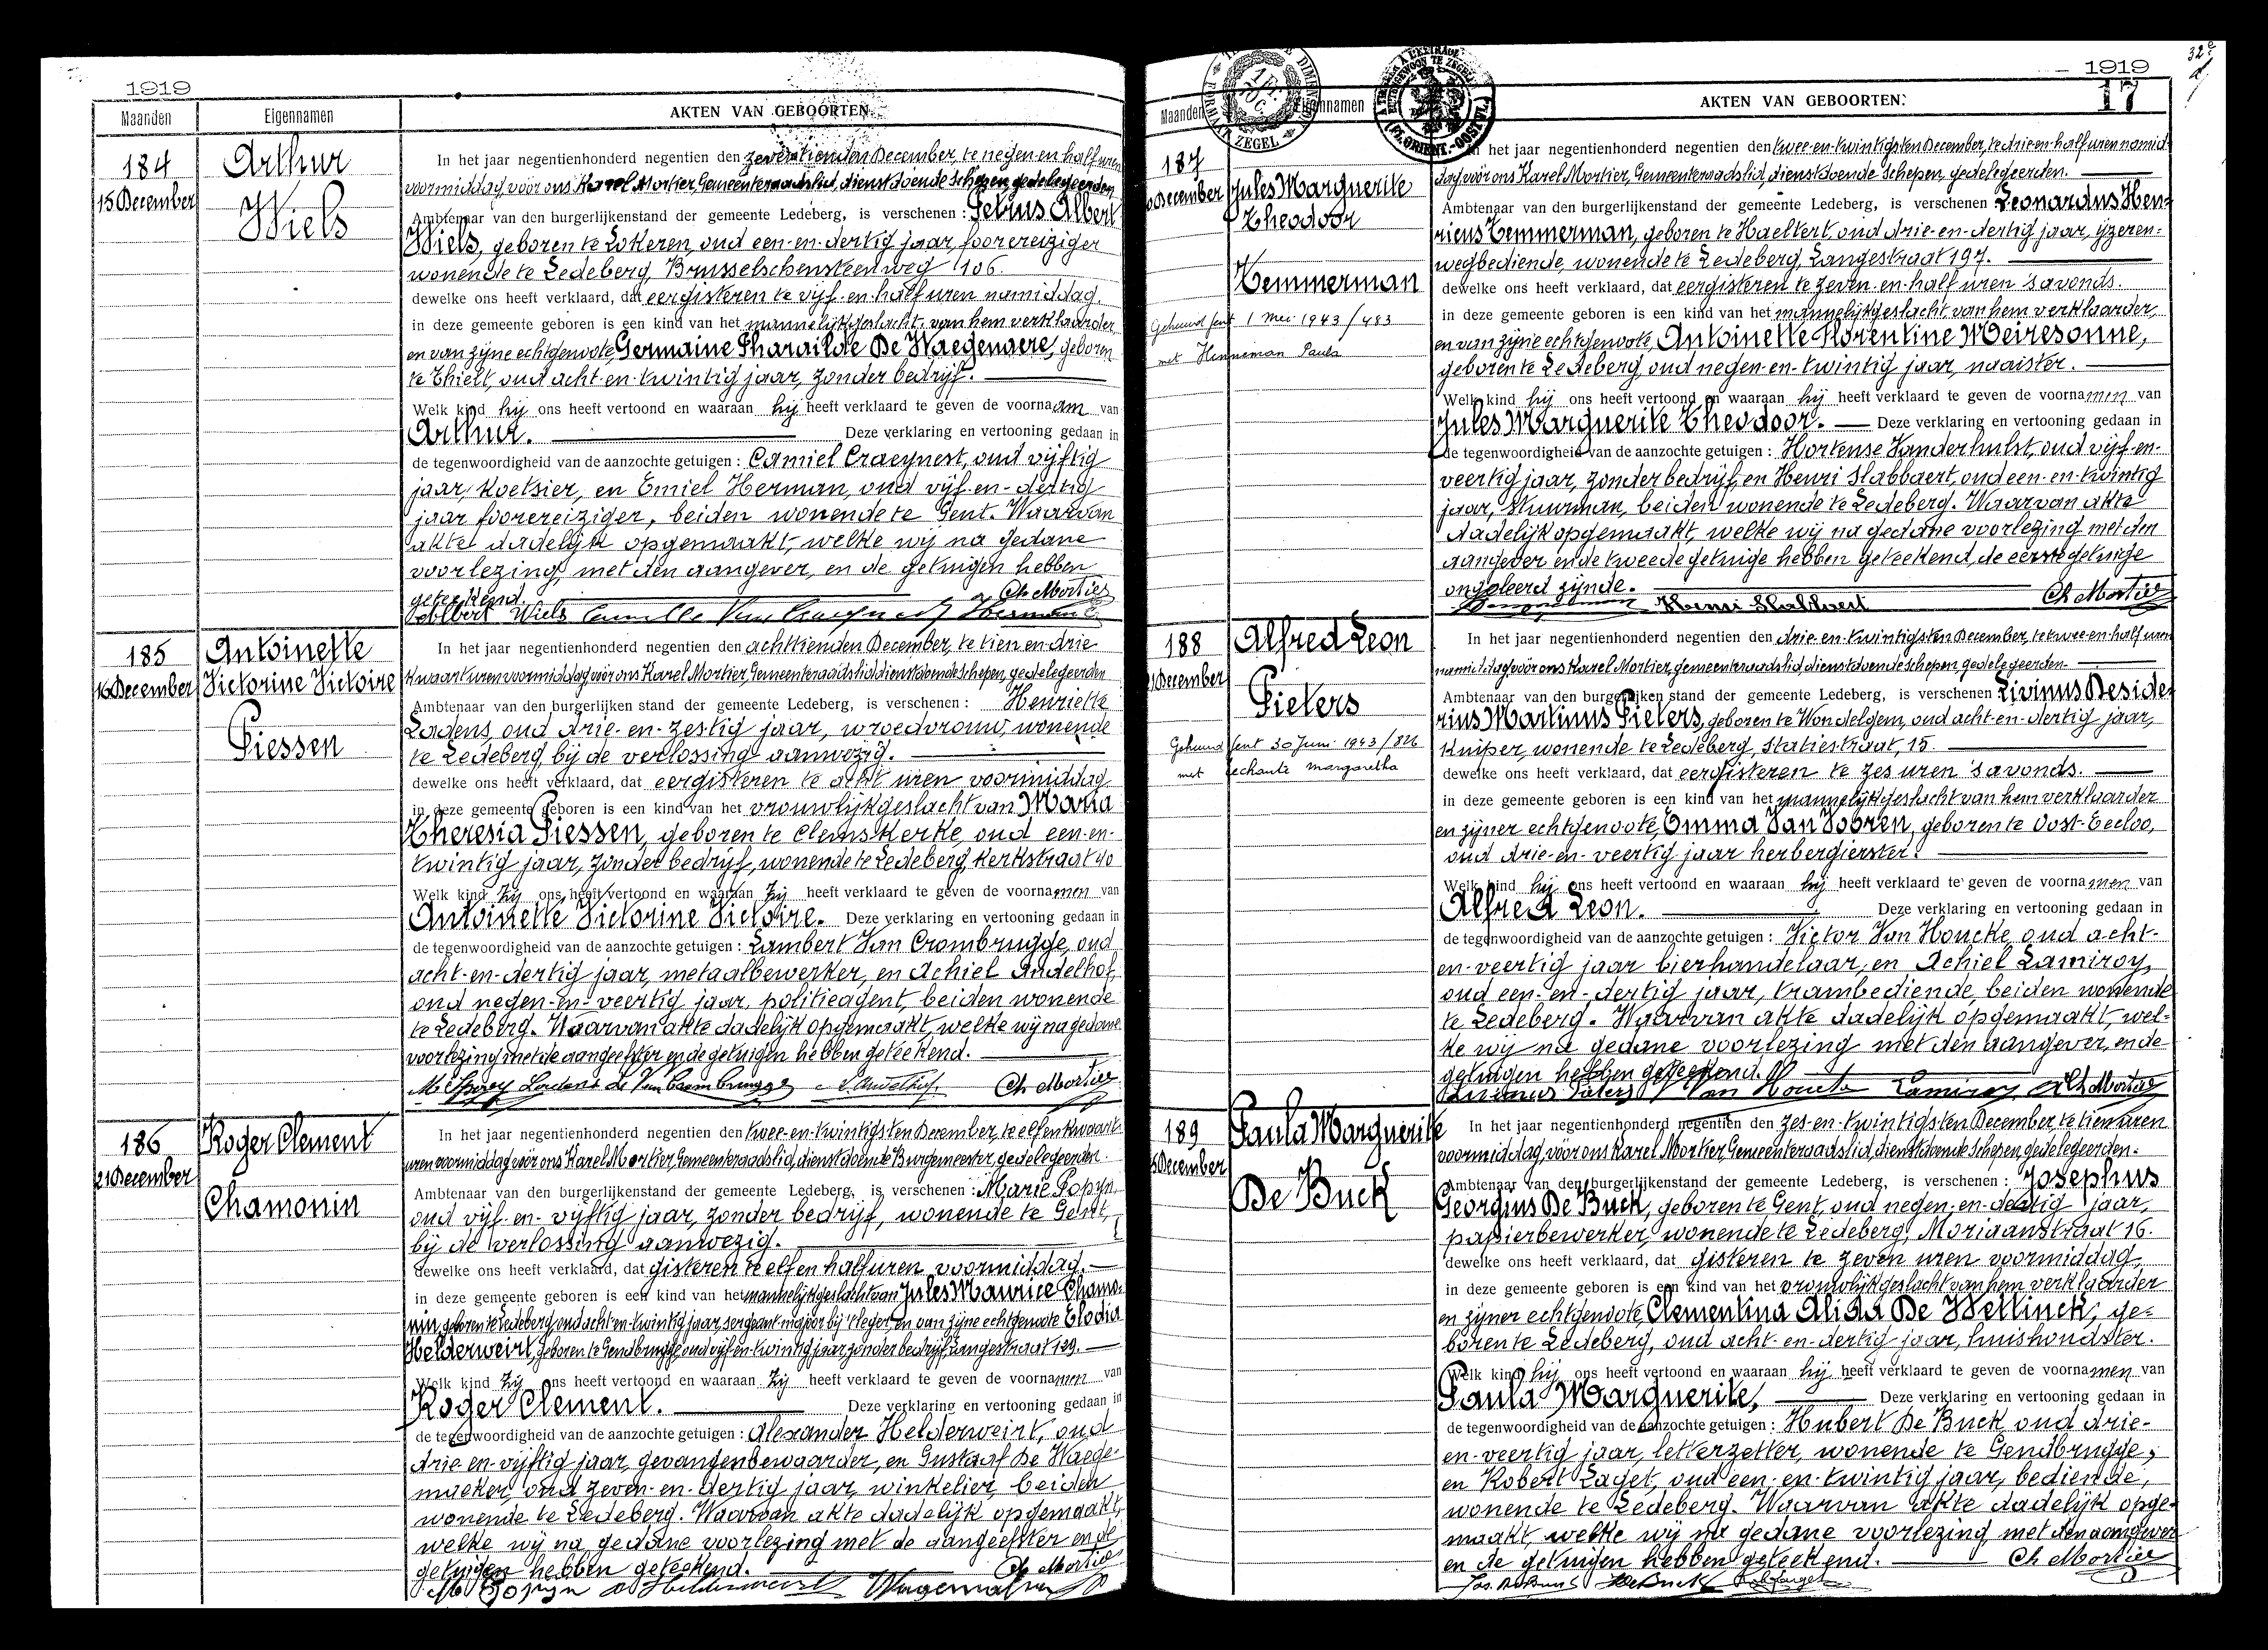 1919
Maanden Eigennamen AKTEN VAN GEBOORTEN
184
15 December
Arthur
Wiels
In het jaar negentienhonderd negentien den zeventienden December, te negen en half uren
voormiddag vóór ons Karel Mortier, Gemeenteraadslid, dienstdoende Schepen, gedelegeerden
Ambtenaar van den burgerlijkenstand der gemeente Ledeberg, is verschenen : Petrus Albert
Wiels, geboren te Lokeren, oud een-en-dertig jaar, foorereiziger
wonende te Ledeberg, Brusselschensteenweg 106.
dewelke ons heeft verklaard, dat eergisteren te vijf-en-half uren namiddag,
in deze gemeente geboren is een kind van het mannelijk geslacht, van hem verklaarder
en van zijne echtgenoote Germaine Pharailde De Waegenaere, geboren
te Thielt, oud acht-en-twintig jaar, zonder bedrijf.
Welk kind hij ons heeft vertoond en waaraan hij heeft verklaard te geven de voornaam van
Arthur. Deze verklaring en vertooning gedaan in
de tegenwoordigheid van de aanzochte getuigen : Camiel Craeynest, oud vijftig
jaar, koetsier, en Emiel Herman, oud vijf-en-dertig
jaar foorereiziger, beiden wonende te Gent. Waarvan
akte dadelijk opgemaakt, welke wij na gedane
voorlezing, met den aangever, en de getuigen hebben
geteekend. Ch Mortier
Albert Wiels
185
16 December
Antoinette
Victorine Victoire
Piessen
In het jaar negentienhonderd negentien den achttienden December, te tien en drie
kwaart uren voormiddag vóór ons Karel Mortier, Gemeenteraadslid dienstdoende Schepen, gedelegeerden
Ambtenaar van den burgerlijken stand der gemeente Ledeberg, is verschenen : Henriette
Ladens, oud drie-en-zestig jaar, vroedvrouw, wonende
te Ledeberg, bij de verlossing aanwezig.
dewelke ons heeft verklaard, dat eergisteren te acht uren voormiddag
in deze gemeente geboren is een kind van het vrouwlijk geslacht van Maria
Theresia Piessen, geboren te Clemskerke, oud een-en-
twintig jaar, zonder bedrijf, wonende te Ledeberg, Kerkstraat 40
Welk kind zij ons heeft vertoond en waaraan zij heeft verklaard te geven de voornamen van
Antoinette Victorine Victoire. Deze verklaring en vertooning gedaan in
de tegenwoordigheid van de aanzochte getuigen : Lambert Van Crombrugge, oud
acht-en-dertig jaar, metaalbewerker, en Achiel Andelhof,
oud negen-en-veertig jaar, politieagent, beiden wonende
te Ledeberg. Waarvan akte dadelijk opgemaakt, welke wij na gedane
voorlezing met de aangeefster en de getuigen hebben geteekend.
Ch Mortier
186
21 December
Roger Clement
Chamonin
In het jaar negentienhonderd negentien den twee-en-twintigsten December, te elf en kwaart
uren voormiddag vóór ons Karel Mortier, Gemeenteraadslid, dienstdoende Burgemeester, gedelegeerden
Ambtenaar van den burgerlijkenstand der gemeente Ledeberg, is verschenen : Marie Popijn,
oud vijf-en-vijftig jaar, zonder bedrijf, wonende te Gent,
bij de verlossing aanwezig.
dewelke ons heeft verklaard, dat gisteren te elf en half uren voormiddag,
in deze gemeente geboren is een kind van het mannelijk geslacht van Jules Maurice Chamo-
nin, geboren te Ledeberg, oud acht-en-twintig jaar, sergeant majoor bij 't leger, en van zijne echtgenoote Elodia
Helderweirt, geboren te Gendbrugge, oud vijf-en-twintig jaar, zonder bedrijf, Langestraat 129.
Welk kind zij ons heeft vertoond en waaraan zij heeft verklaard te geven de voornamen van
Roger Clement. Deze verklaring en vertooning gedaan in
de tegenwoordigheid van de aanzochte getuigen : Alexander Helderweirt, oud
drie-en-vijftig jaar, gevangenbewaarder, en Gustaaf De Waege-
maeker, oud zeven-en-dertig jaar, winkelier, beiden
wonende te Ledeberg. Waarvan akte dadelijk opgemaakt,
welke wij na gedane voorlezing met de aangeefster en de
getuigen hebben geteekend. Ch Mortier
1919
17
Maanden Eigennamen AKTEN VAN GEBOORTEN.
187
December
Jules Marguerite
Theodoor
Temmerman
Gehuwd Gent 1 Mei 1943 / 483
met Henneman Paula
In het jaar negentienhonderd negentien den twee-en-twintigsten December, te drie en half uren namid-
dag vóór ons Karel Mortier, Gemeenteraadslid, dienstdoende Schepen, gedelegeerden.
Ambtenaar van den burgerlijkenstand der gemeente Ledeberg, is verschenen Leonardus Hen-
ricus Temmerman, geboren te Haeltert, oud drie-en-dertig jaar, ijzeren-
wegbediende, wonende te Ledeberg, Langestraat 197.
dewelke ons heeft verklaard, dat eergisteren te zeven-en-half uren 's avonds.
in deze gemeente geboren is een kind van het mannelijk geslacht van hem verklaarder
en van zijne echtgenoote, Antoinette Florentine Meiresonne,
geboren te Ledeberg, oud negen-en-twintig jaar, naaister.
Welk kind hij ons heeft vertoond en waaraan hij heeft verklaard te geven de voornamen van
Jules Marguerite Theodoor. Deze verklaring en vertooning gedaan in
de tegenwoordigheid van de aanzochte getuigen : Hortense Vanderhulst, oud vijf-en-
veertig jaar, zonder bedrijf, en Henri Slabbaert, oud een-en-twintig
jaar, stuurman, beiden wonende te Ledeberg. Waarvan akte
dadelijk opgemaakt, welke wij na gedane voorlezing met den
aangever en de tweede getuige hebben geteekend, de eerste getuige
ongeleerd zijnde.
Henri Slabbaert Ch Mortier
188
December
Alfred Leon
Pieters
Gehuwd Gent 30 Juni 1943 / 826
met Lechanté Margaretha
In het jaar negentienhonderd negentien den drie-en-twintigsten December, te twee-en-half uren
namiddag vóór ons Karel Mortier, gemeenteraadslid, dienstdoende schepen, gedelegeerden
Ambtenaar van den burgerlijken stand der gemeente Ledeberg, is verschenen Livinus Deside-
rius Martinus Pieters, geboren te Wondelgem, oud acht-en-dertig jaar,
kuiper, wonende te Ledeberg, Statiestraat, 15.
dewelke ons heeft verklaard, dat eergisteren te zes uren 's avonds.
in deze gemeente geboren is een kind van het mannelijk geslacht van hem verklaarder
en zijner echtgenoote, Emma Van Vooren, geboren te Oost-Eecloo,
oud drie-en-veertig jaar herbergierster.
Welk kind hij ons heeft vertoond en waaraan hij heeft verklaard te geven de voornamen van
Alfred Leon. Deze verklaring en vertooning gedaan in
de tegenwoordigheid van de aanzochte getuigen : Victor Van Houcke, oud acht-
en-veertig jaar bierhandelaar, en Achiel Lamiroy,
oud een-en-dertig jaar, trambediende, beiden wonende
te Ledeberg. Waarvan akte dadelijk opgemaakt, wel-
ke wij na gedane voorlezing met den aangever, en de
getuigen hebben geteekend.
Livinus Pieters Van Houcke Lamiroy Ch Mortier
189
December
Paula Marguerite
De Buck
In het jaar negentienhonderd negentien den zes-en-twintigsten December, te tien uren
voormiddag, vóór ons Karel Mortier, Gemeenteraadslid, dienstdoende schepen, gedelegeerden.
Ambtenaar van den burgerlijkenstand der gemeente Ledeberg, is verschenen : Josephus
Georgius De Buck, geboren te Gent, oud negen-en-dertig jaar,
papierbewerker, wonende te Ledeberg, Moriaanstraat 16.
dewelke ons heeft verklaard, dat gisteren te zeven uren voormiddag,
in deze gemeente geboren is een kind van het vrouwlijk geslacht van hem verklaarder
en zijner echtgenoote, Clementina Alida De Wettinck, ge-
boren te Ledeberg, oud acht-en-dertig jaar, huishoudster.
Welk kind hij ons heeft vertoond en waaraan hij heeft verklaard te geven de voornamen van
Paula Marguerite, Deze verklaring en vertooning gedaan in
de tegenwoordigheid van de aanzochte getuigen : Hubert De Buck, oud drie-
en-veertig jaar, letterzetter, wonende te Gendbrugge,
en Robert Laget, oud een-en-twintig jaar, bediende,
wonende te Ledeberg. Waarvan akte dadelijk opge-
maakt, welke wij na gedane voorlezing met den aangever
en de getuigen hebben geteekend. Ch Mortier